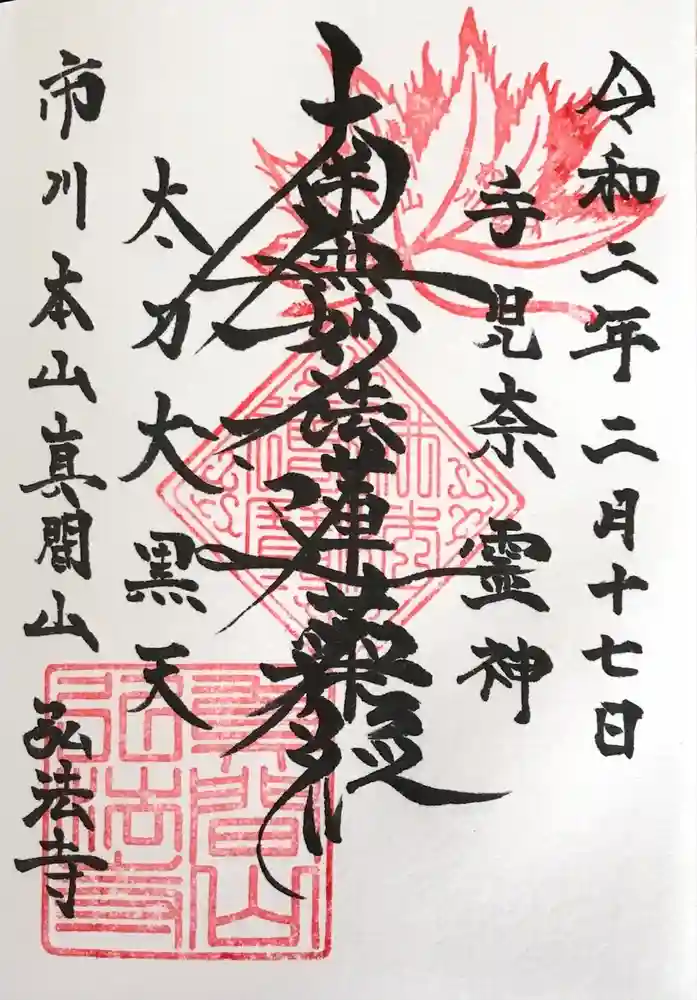 令和二年二月十七日
手児奈霊神
南無妙法蓮華経
太刀大黒天
市川本山真間山弘法寺
真間山
弘法寺